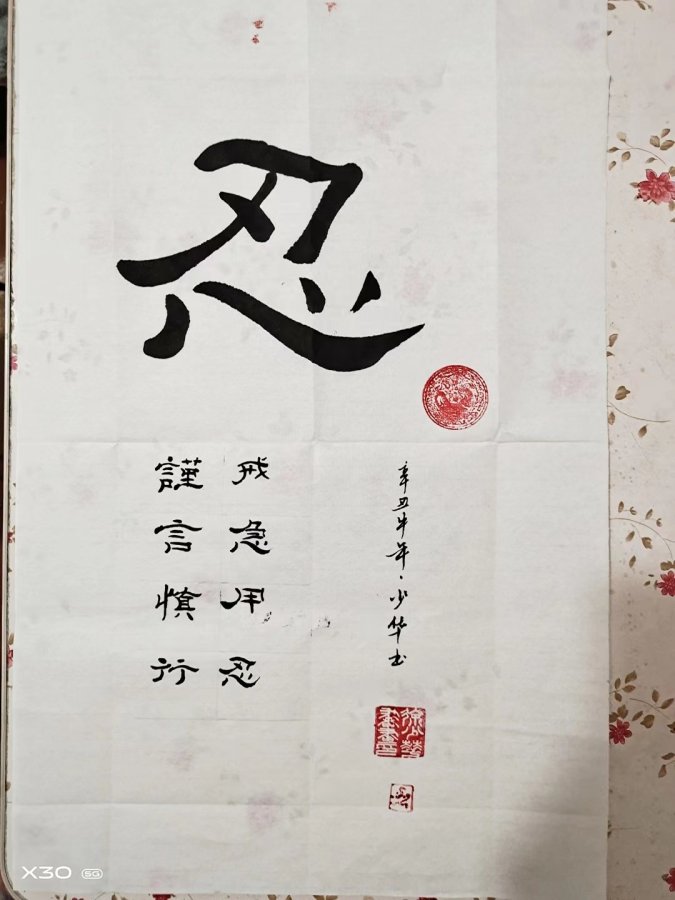 忍
戒急用忍
謹言慎行
辛丑牛年·少华书
X30 5G